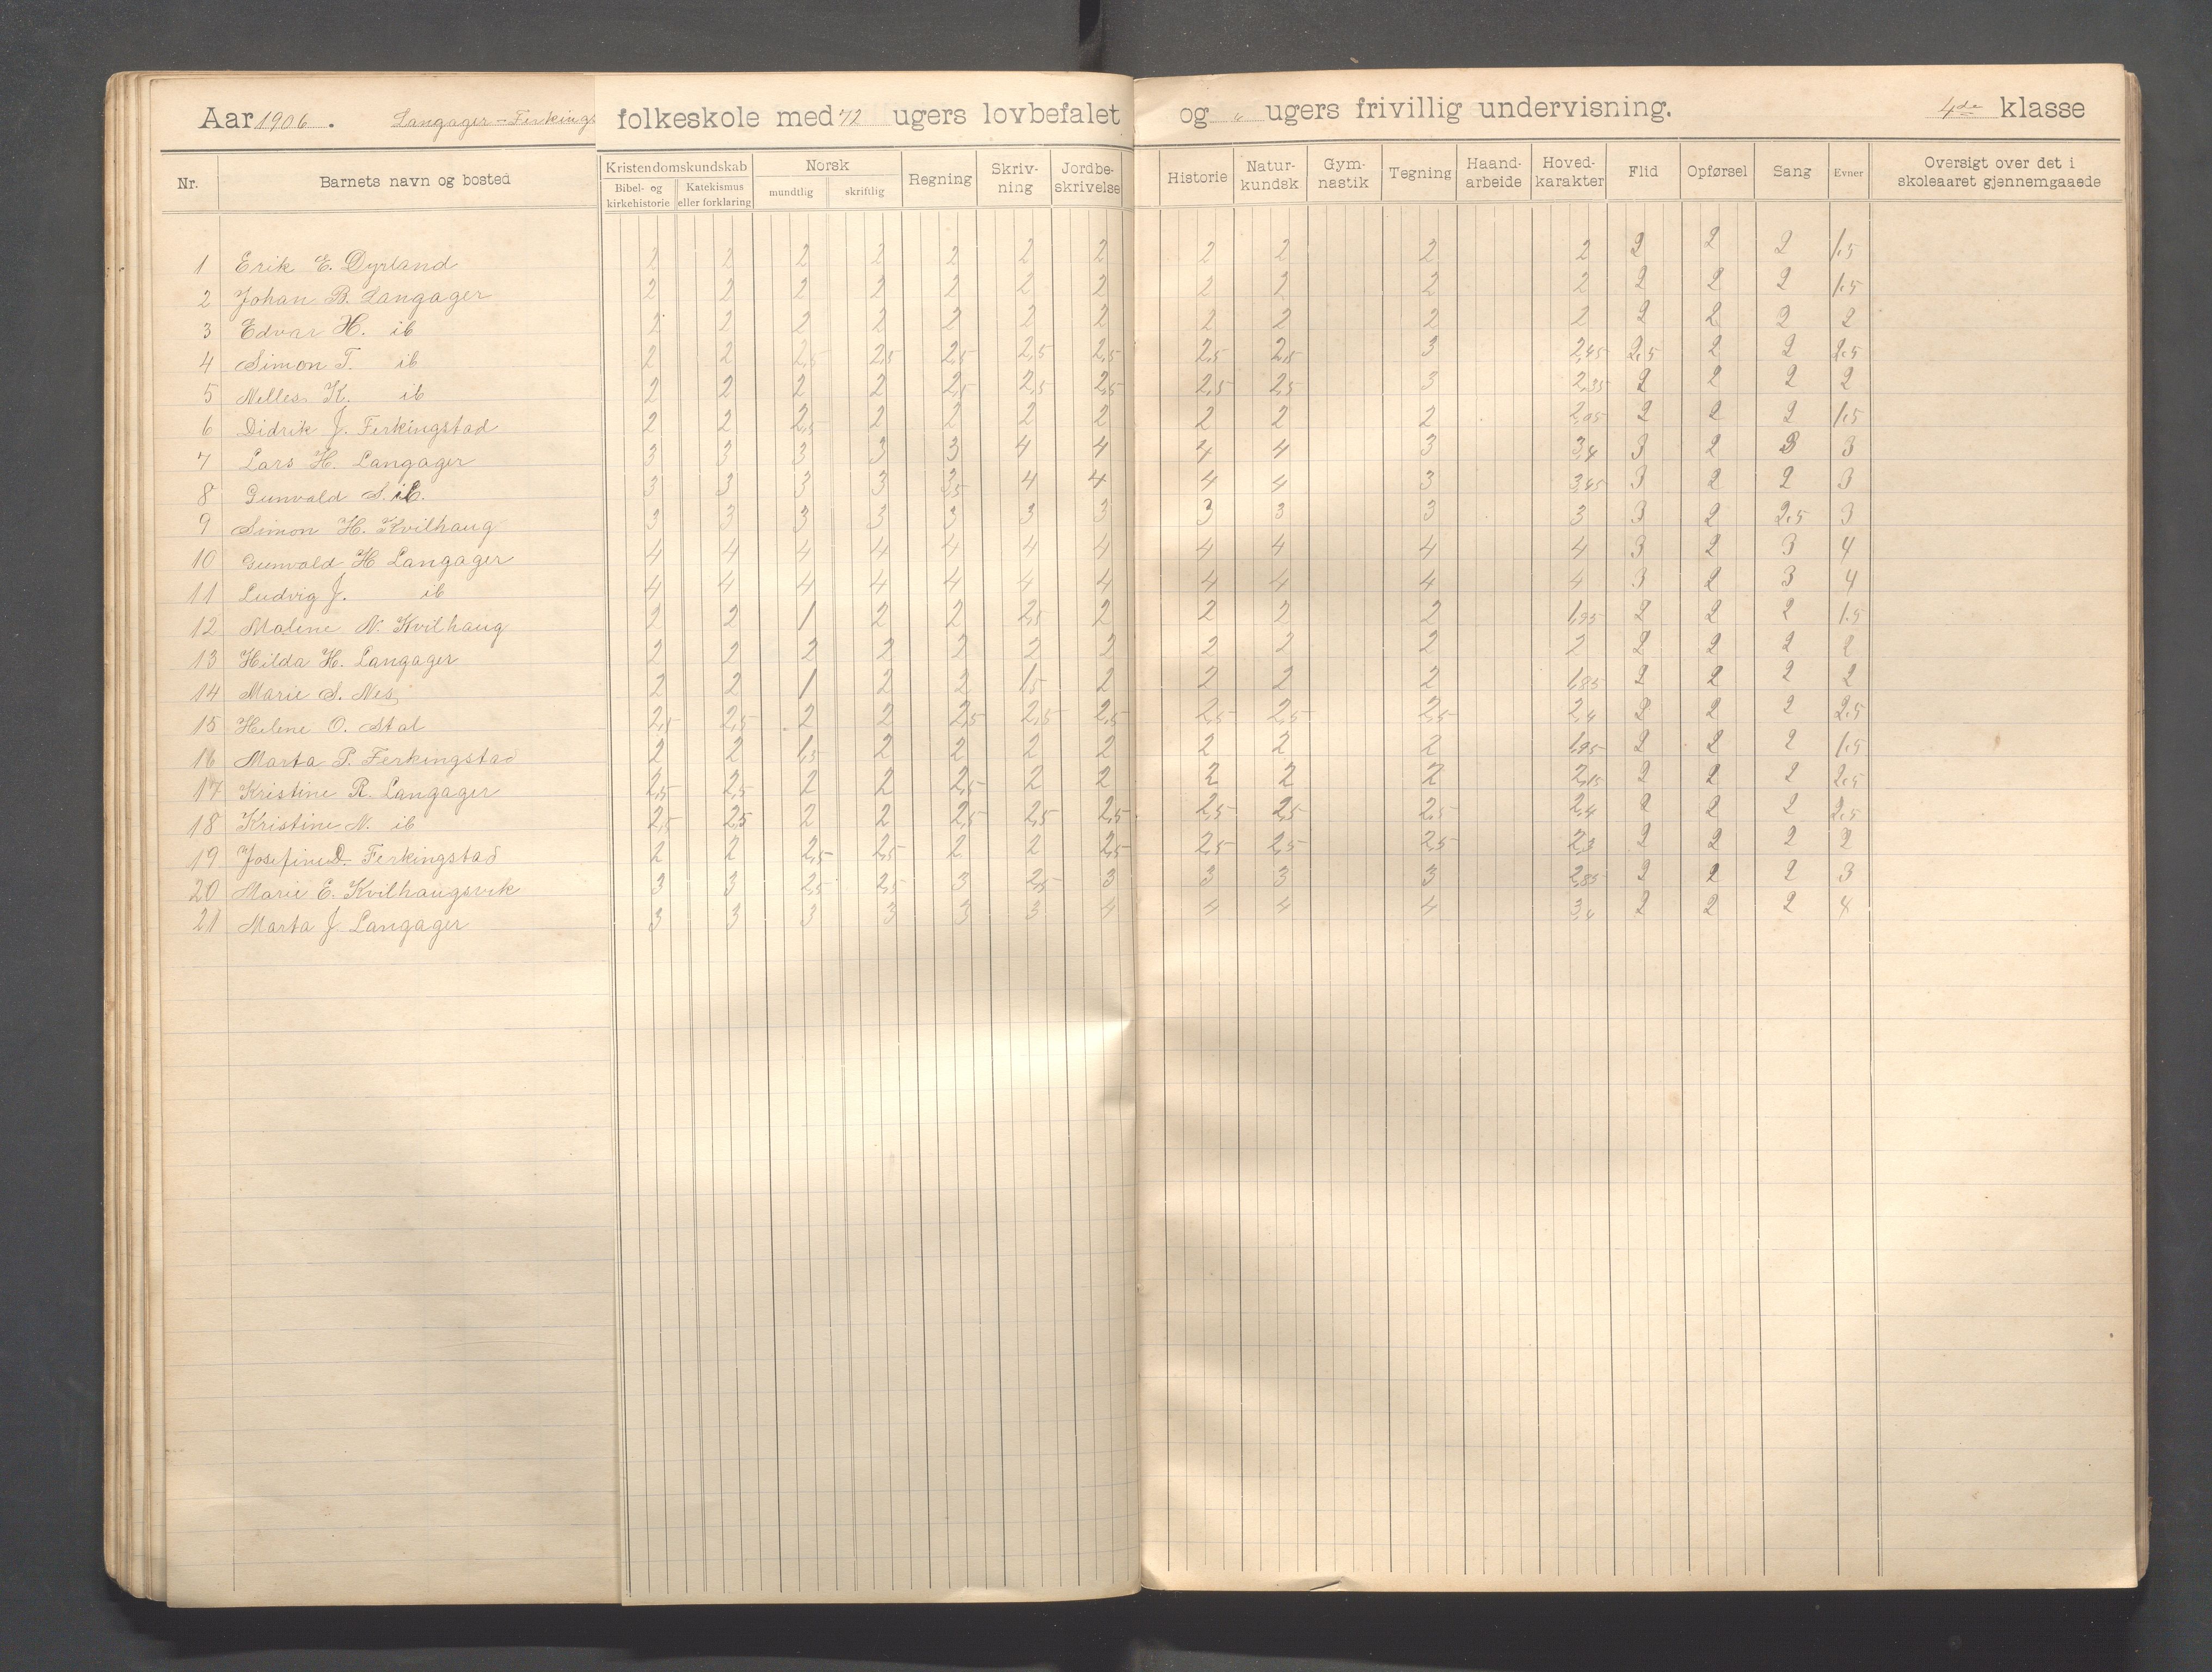 Aar 1906. Langager-Ferkings folkeskole med 12 ugers lovbefalet og „ ugers frivillig undervisning. 4de klasse
Nr. Barnets navn og bosted Kristendomskundskab Bibel- og kirkehistorie Katekismus eller forklaring Norsk mundtlig skriftlig Regning Skriv-ning Jordbe-skrivelse Historie Natur-kundsk Gym-nastik Tegning Haand-arbeide Hoved-karakter Flid Opførsel Sang Evner Oversigt over det i skoleaaret gjennemgaaede
1 Erik E. Dyrland 2 2 2 2 2 2 2 2 2 2 2 2 2 2 1.5
2 Johan B. Langager 2 2 2 2 2 2 2 2 2 2 2 2 2 2 1.5
3 Edvar H. ib 2 2 2 2 2 2 2 2 2 2 2 2 2 2 2
4 Simon T. ib 2 2 2,5 2,5 2,5 2,5 2,5 2,5 2,5 3 2,45 2.5 2 2 2.5
5 Nelles K. ib 2 2 2 2 2,5 2,5 2,5 2,5 2,5 3 2,35 2 2 2 2
6 Didrik J. Ferkingstad 2 2 2,5 2 2 2 2 2 2 2 2,05 2 2 2 1.5
7 Lars H. Langager 3 3 3 3 3 4 4 4 4 3 3,4 3 2 3 3
8 Gunvald S. ib. 3 3 3 3 3,5 4 4 4 4 3 3,45 3 2 2 3
9 Simon H. Kvilhaug 3 3 3 3 3 3 3 3 3 3 3 3 2 2.5 3
10 Gunvald H Langager 4 4 4 4 4 4 4 4 4 4 4 3 2 3 4
11 Ludvig J. ib 4 4 4 4 4 4 4 4 4 4 4 3 2 3 4
12 Malene N. Kvilhaug 2 2 1 2 2 2,5 2 2 2 2 1,95 2 2 2 1.5
13 Hilda H. Langager 2 2 2 2 2 2 2 2 2 2 2 2 2 2 2
14 Marie S. Nes 2 2 1 2 2 1,5 2 2 2 2 1,85 2 2 2 2
15 Helene O. Stal 2,5 2,5 2 2 2,5 2,5 2,5 2,5 2,5 2,5 2,4 2 2 2 2.5
16 Marta P. Ferkingstad 2 2 1,5 2 2 2 2 2 2 2 1,95 2 2 2 1.5
17 Kristine R. Langager 2,5 2,5 2 2 2,5 2 2 2 2 2 2,15 2 2 2 2.5
18 Kristine N. ib 2,5 2,5 2 2 2,5 2,5 2,5 2,5 2,5 2,5 2,4 2 2 2 2.5
19 Josefine D. Ferkingstad 2 2 2,5 2,5 2 2 2,5 2,5 2,5 2,5 2,3 2 2 2 2
20 Marie E. Kvilhaugsvik 3 3 2,5 2,5 3 2,5 3 3 3 3 2,85 2 2 2 3
21 Marta J. Langager 3 3 3 3 3 3 4 4 4 4 3,4 2 2 2 4